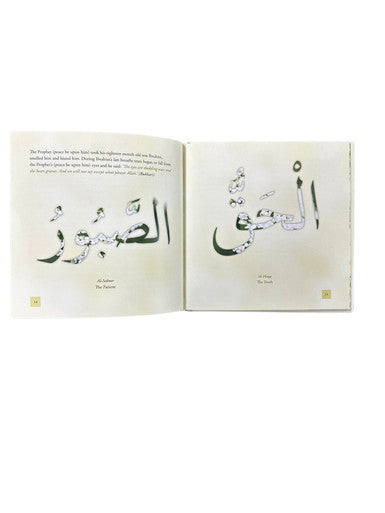 The Prophet (peace be upon him) took his eighteen month old son Ibrahim,
smelled him and kissed him. During Ibrahim's last breaths tears began to fall from
the Prophet's (peace be upon him) eyes and he said: 'The eyes are shedding tears and
the heart grieves. And we will not say except what pleases Allah.' (Bukhari)
الصَّبُورُ
Al-Saboor
The Patient
14
الْحَقُّ
Al-Haqq
The Truth